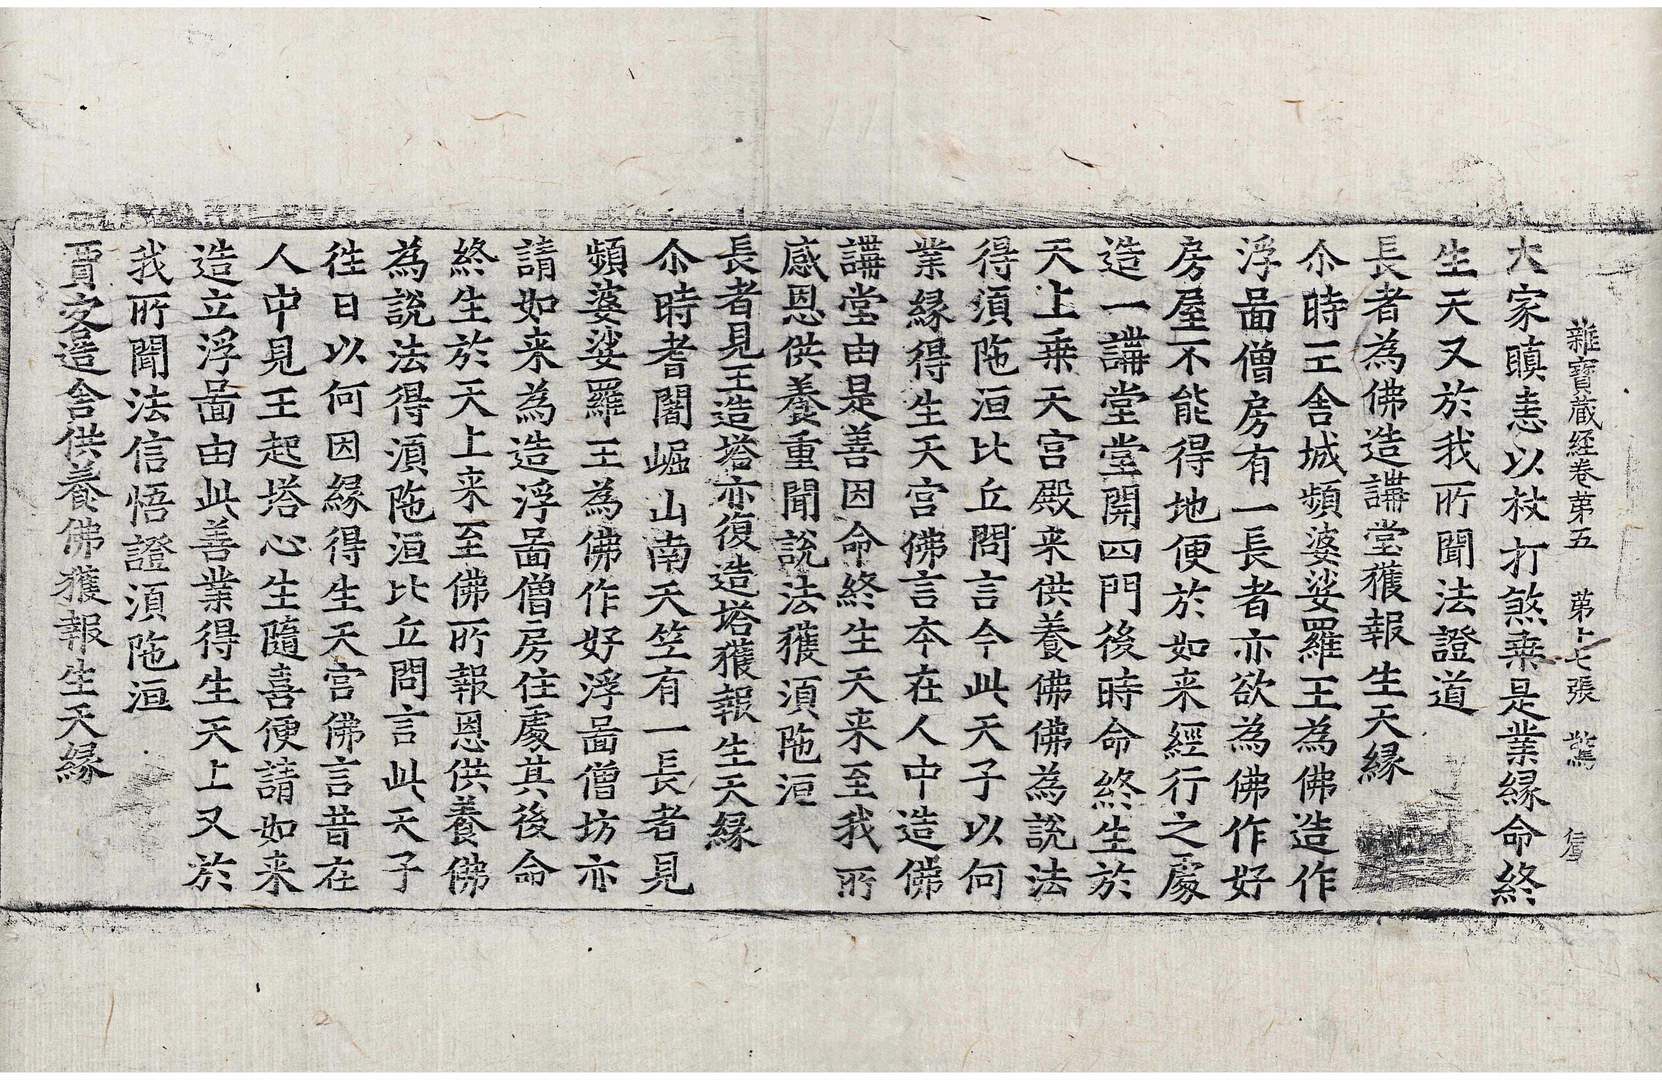 雜寶藏經卷第五 第十七張 驚
大家瞋恚以杖打煞乗是業縁命終
生天又於我所聞法證道
長者為佛造講堂獲報生天縁
尒時王舍城頻婆娑羅王為佛造作
浮啚僧房有一長者亦欲為佛作好
房屋不能得地便於如来經行之處
造一講堂堂開四門後時命終生於
天上乗天宫殿来供養佛佛為說法
得湏陁洹比丘問言今此天子以何
業縁得生天宫佛言夲在人中造佛
講堂由是善因命終生天来至我所
感恩供養重聞說法獲湏陁洹
長者見王造塔亦復造塔獲報生天縁
尒時耆闍崛山南天笁有一長者見
頻婆娑羅王為佛作好浮啚僧坊亦
請如来為造浮啚僧房住處其後命
終生於天上来至佛所報恩供養佛
為說法得湏陁洹比丘問言此天子
徃日以何因縁得生天宫佛言昔在
人中見王起塔心生隨喜便請如来
造立浮啚由此善業得生天上又於
我所聞法信悟證湏陁洹
賈客造舍供養佛獲報生天縁